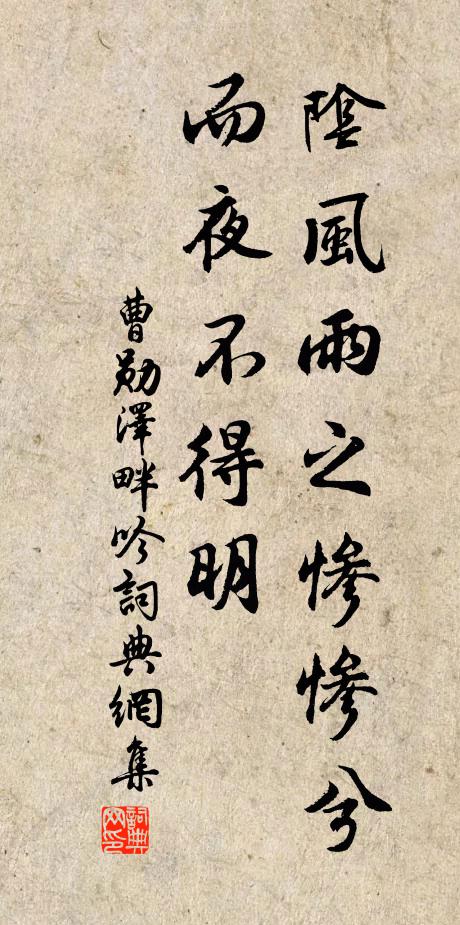 陰風雨之慘慘兮
而夜不得明
曹勛澤畔吟詞典網集
詞典網印